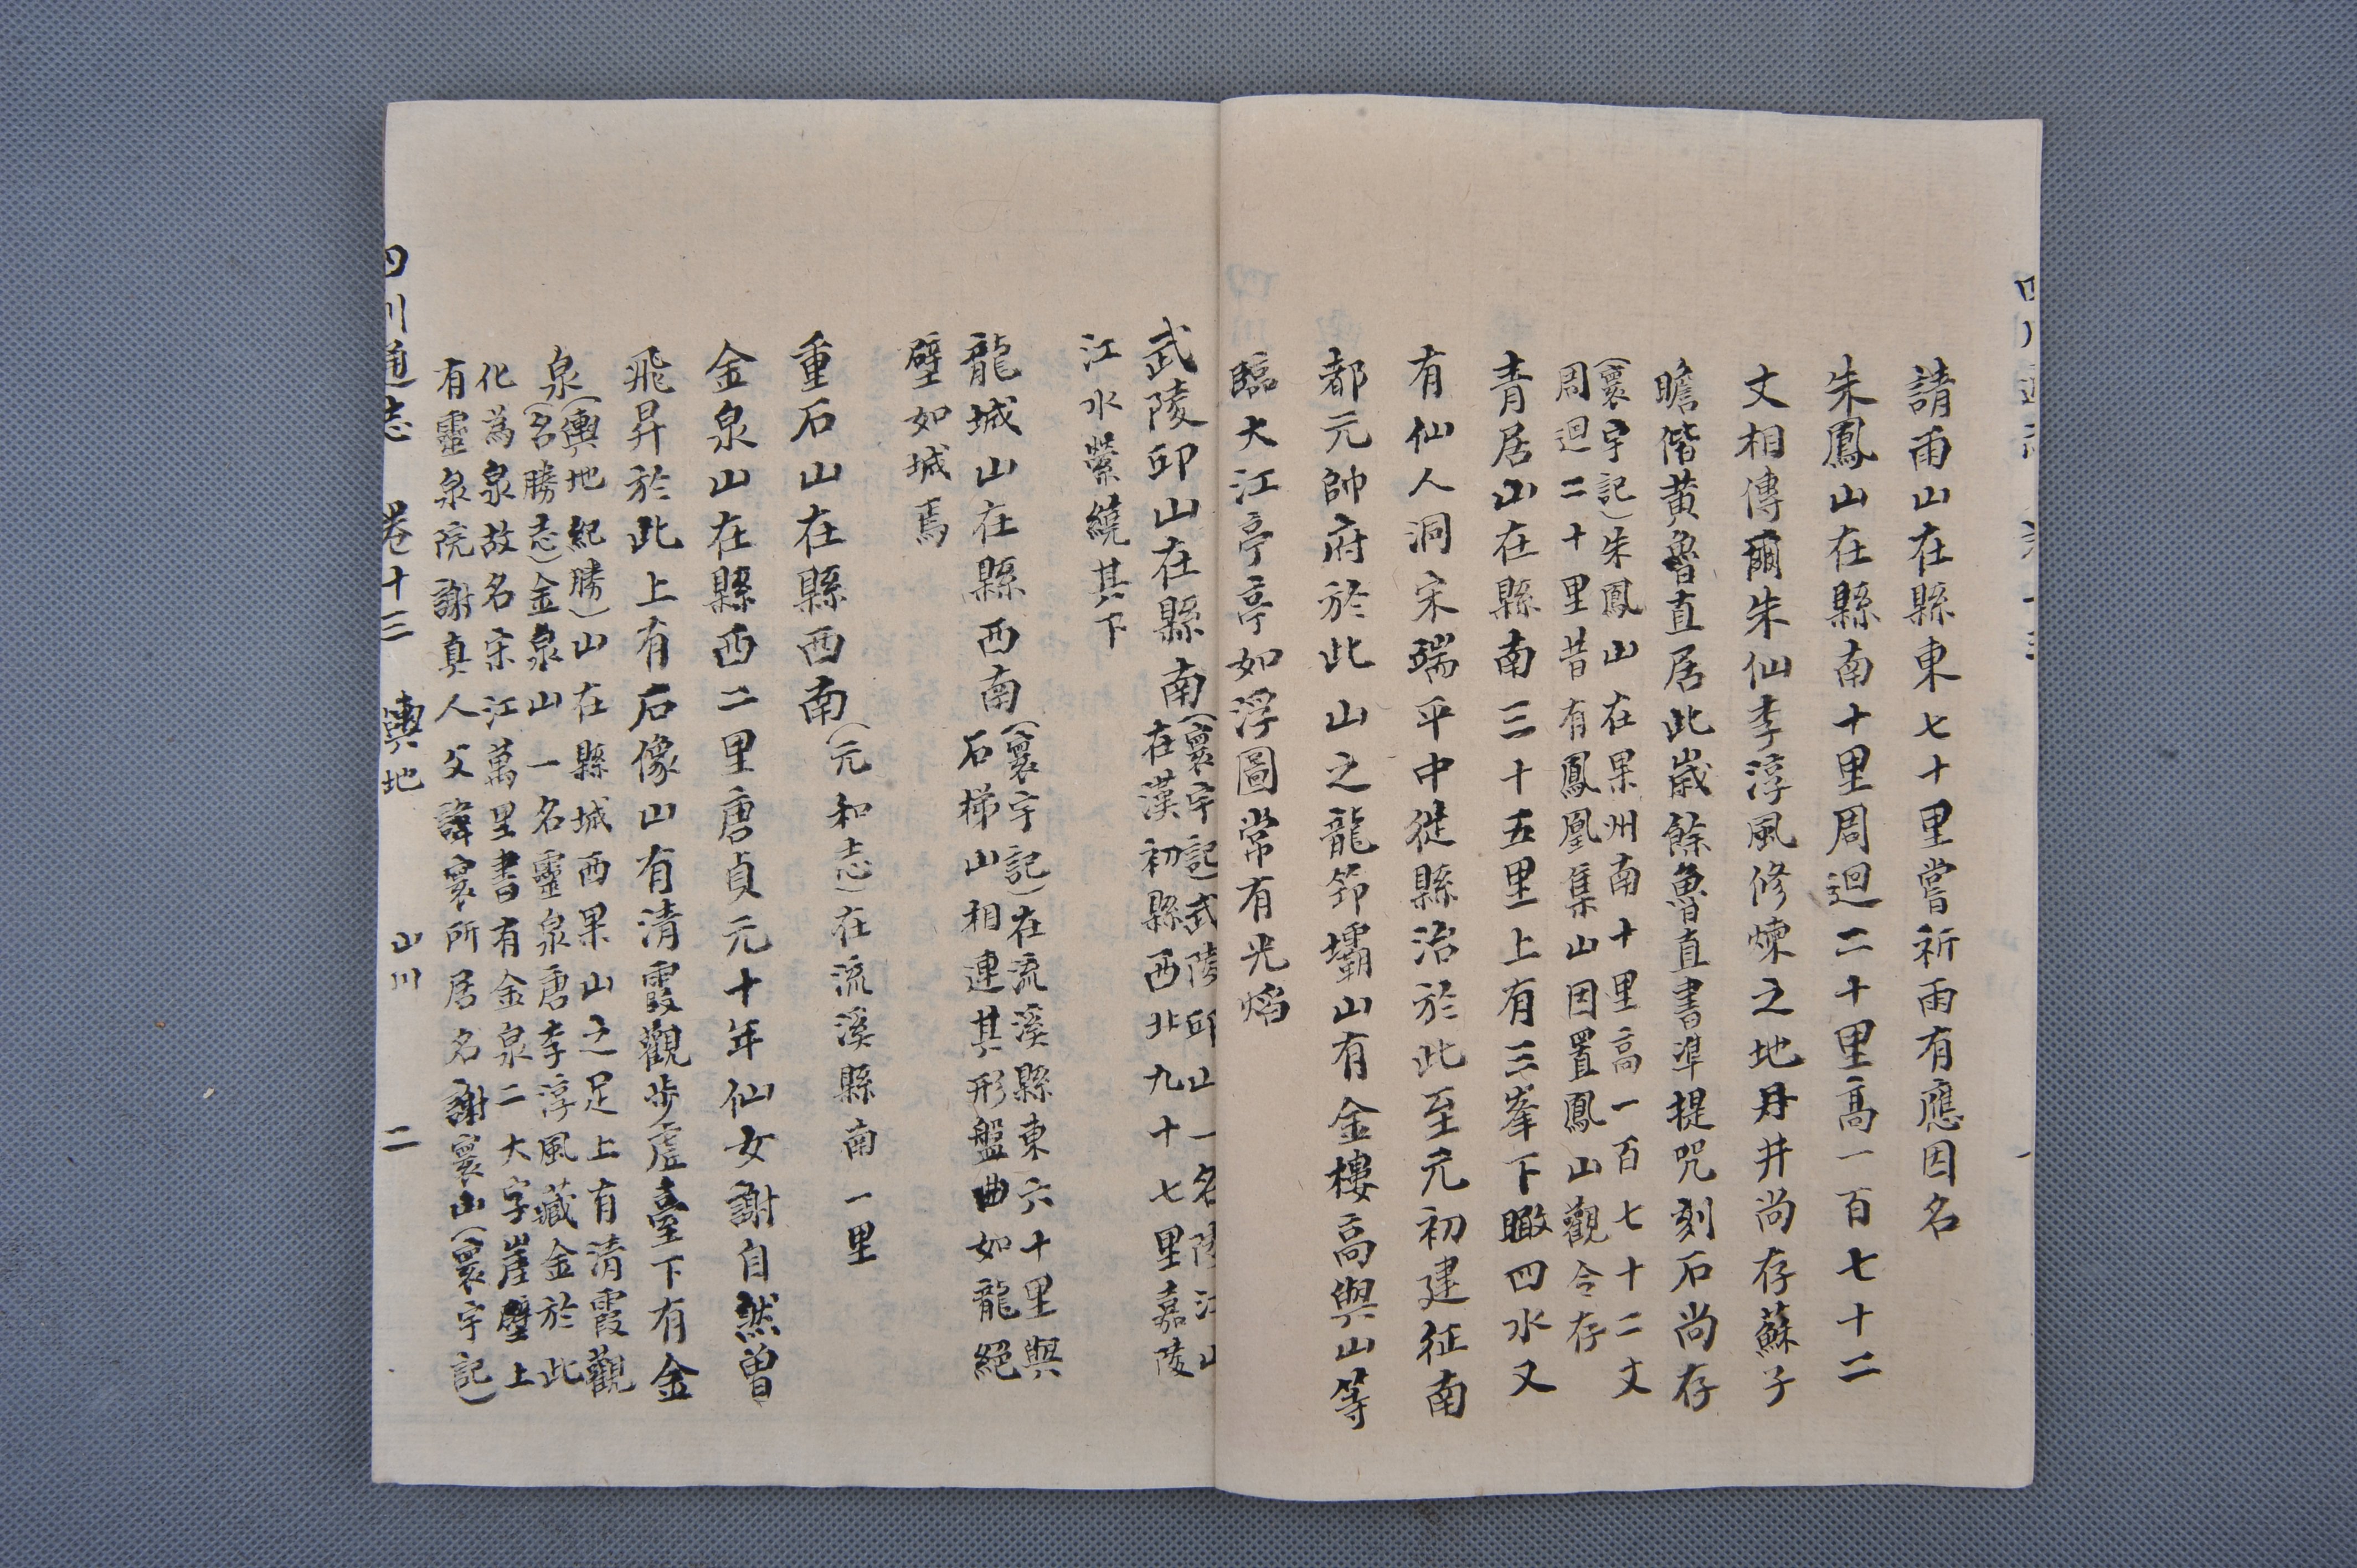 請雨山在縣東七十里嘗祈雨有應因名
朱鳳山在縣南十里周迴二十里高一百七十二
丈相傳爾朱仙李淳風修煉之地丹井尚存蘇子
瞻偕黃魯直居此歲餘魯直書準提咒刻石尚存
(寰宇記)朱鳳山在果州南十里高一百七十二丈
周迴二十里昔有鳳凰集山因置鳳山觀今存
青居山在縣南三十五里上有三峯下瞰四水又
有仙人洞宋端平中徙縣治於此至元初建征南
都元帥府於此山之龍節壩山有金樓高與山等
臨大江亭亭如浮圖常有光熖
武陵邱山在縣南(寰宇記)武陵邱山一名陵江山
在漢初縣西北九十七里嘉陵
江水縈繞其下
龍城山在縣西南(寰宇記)在流溪縣東六十里與
石梯山相連其形盤曲如龍絕
壁如城焉
重石山在縣西南(元和志)在流溪縣南一里
金泉山在縣西二里唐貞元十年仙女謝自然曾
飛昇於此上有石像山有清霞觀步虛臺下有金
泉(輿地紀勝)山在縣城西果山之足上有清霞觀
(名勝志)金泉山一名靈泉唐李淳風藏金於此
化為泉故名宋江萬里書有金泉二大字崖壁上
有靈泉院謝真人父諱寰所居名謝寰山(寰宇記)
四川通志 卷十三 輿地 山川 二